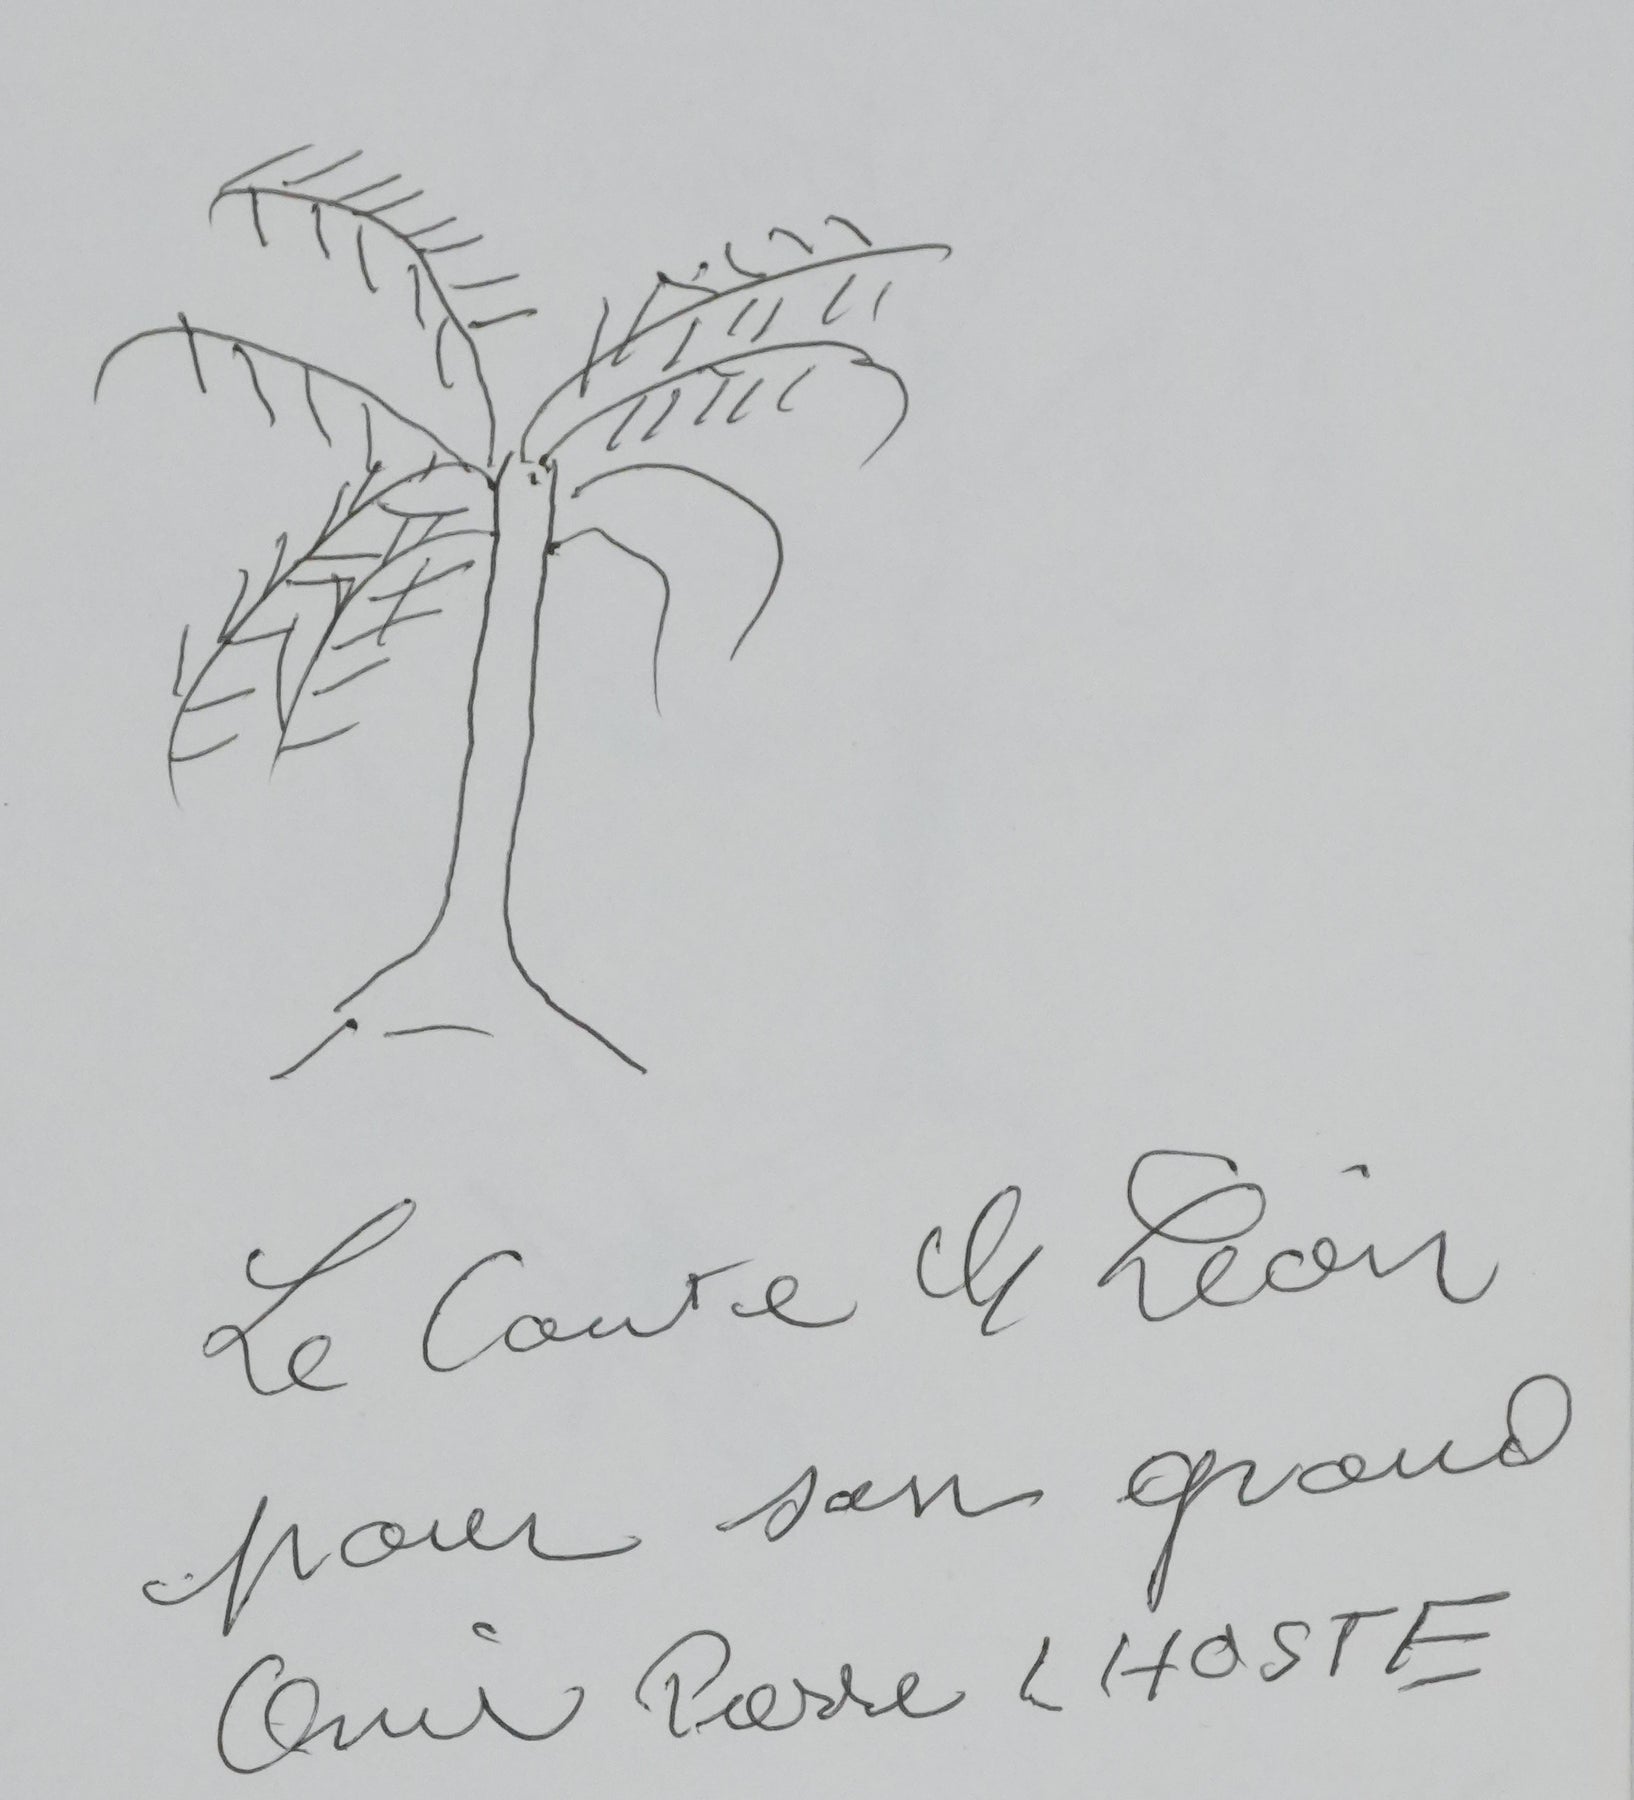 Le Comte de Léon
pour son grand
Ami Pierre LHOSTE